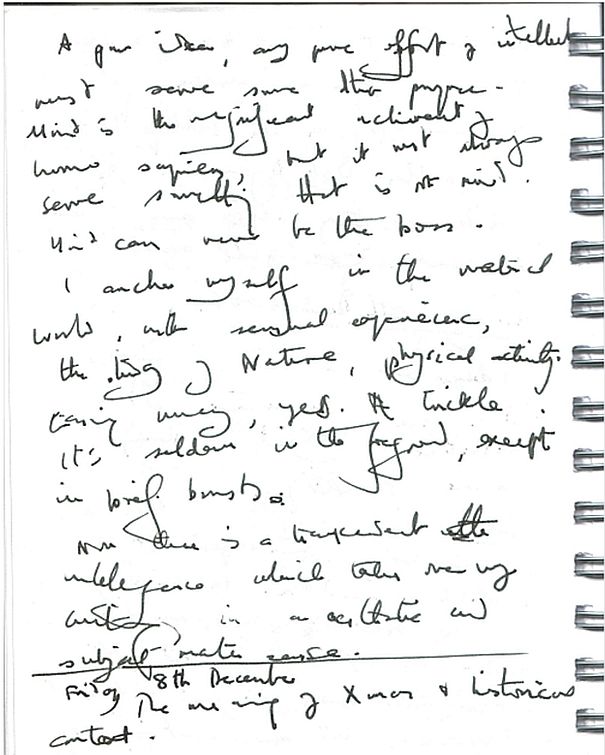 A pure idea, any pure effort of intellect
must serve some other purpose.
Mind is the magnificent achievement of
homo sapiens, but it must always
serve something that is not mind.
Mind can never be the boss.
I anchor myself in the material
world, with sensual experience,
the of Nature, physical activity.
Earning money, yes. A trickle.
It's seldom in the foreground, except
in brief bursts.
Now there is a transcendent
intelligence which takes over my
writing in an aesthetic and
subject matter sense.
Friday 8th December
The meaning of Xmas & historical
context.